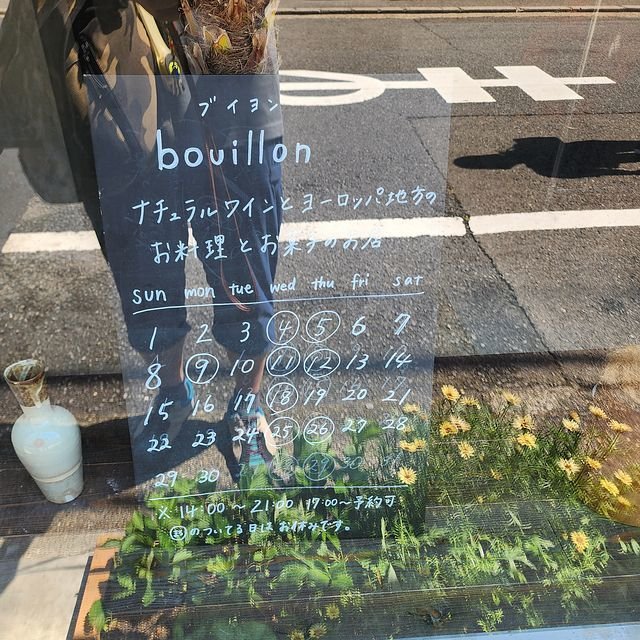 ブイヨン
bouillon
ナチュラルワインとヨーロッパ地方の
お料理とお菓子のお店
sun mon tue wed thu fri sat
1 2 3 4 5 6 7
8 9 10 11 12 13 14
15 16 17 18 19 20 21
22 23 24 25 26 27 28
29 30
※ 14:00〜21:00 17:00〜予約可
のついてる日は お休みです。